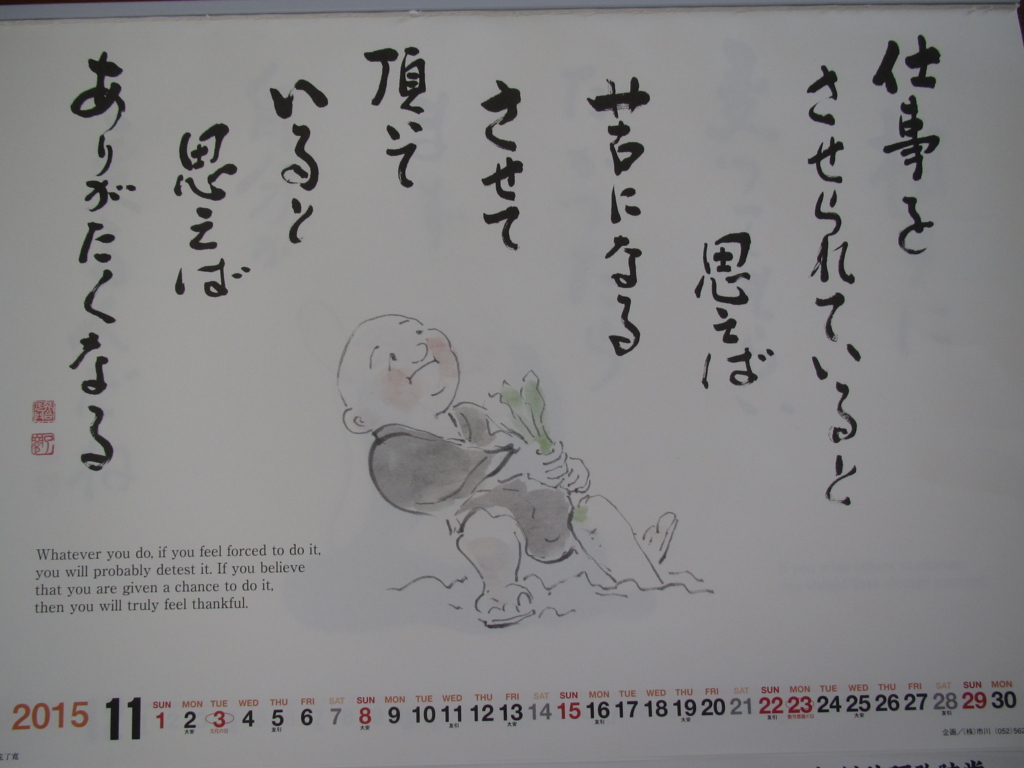 仕事を
させられていると
思えば
苦になる
させて
頂いて
いると
思えば
ありがたくなる
Whatever you do, if you feel forced to do it,
you will probably detest it. If you believe
that you are given a chance to do it,
then you will truly feel thankful.
2015 11
SUN MON TUE WED THU FRI SAT SUN MON TUE WED THU FRI SAT SUN MON TUE WED THU FRI SAT SUN MON TUE WED THU FRI SAT SUN MON
1 2 3 4 5 6 7 8 9 10 11 12 13 14 15 16 17 18 19 20 21 22 23 24 25 26 27 28 29 30